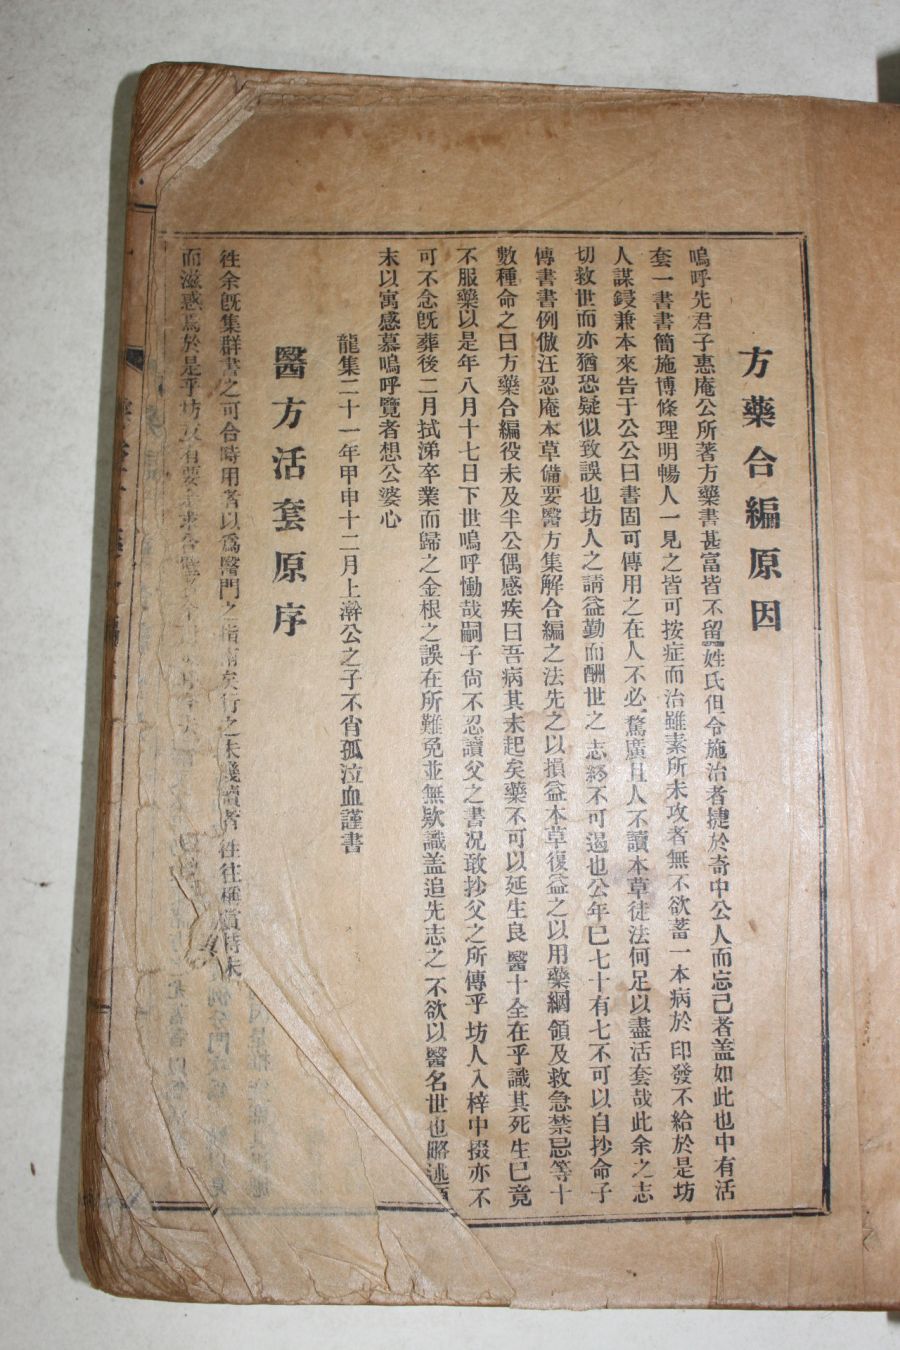 方藥合編原因
嗚呼先君子惠庵公所著方藥書甚富皆不留姓氏但令施治者捷於奇中公人而忘己者盖如此也中有活
套一書書簡施博條理明暢人一見之皆可按症而治雖素所未攻者無不欲蓄一本病於印發不給於是坊
人謀鋟兼本來告于公公曰書固可傳用之在人不必騖廣且人不讀本草徒法何足以盡活套哉此余之志
切救世而亦猶恐疑似致誤也坊人之請益勤而酬世之志終不可遏也公年巳七十有七不可以自抄命子
傳書書例倣汪忍庵本草備要醫方集解合編之法先之以損益本草復益之以用藥綱領及救急禁忌等十
數種命之曰方藥合編役未及半公偶感疾曰吾病其未起矣藥不可以延生良醫十全在乎識其死生巳竟
不服藥以是年八月十七日下世嗚呼慟哉嗣子尙不忍讀父之書况敢抄父之所傳乎坊人入梓中掇亦不
可不念旣葬後二月拭涕卒業而歸之金根之誤在所難免並無欵識盖追先志之不欲以醫名世也略述
末以寓感慕嗚呼覽者想公婆心
龍集二十一年甲申十二月上澣公之子不肖孤泣血謹書
醫方活套原序
徃余旣集群書之可合時用者以爲醫門之指南矣行之未幾讀者徃徃稱
而滋惑焉於是乎坊友有要